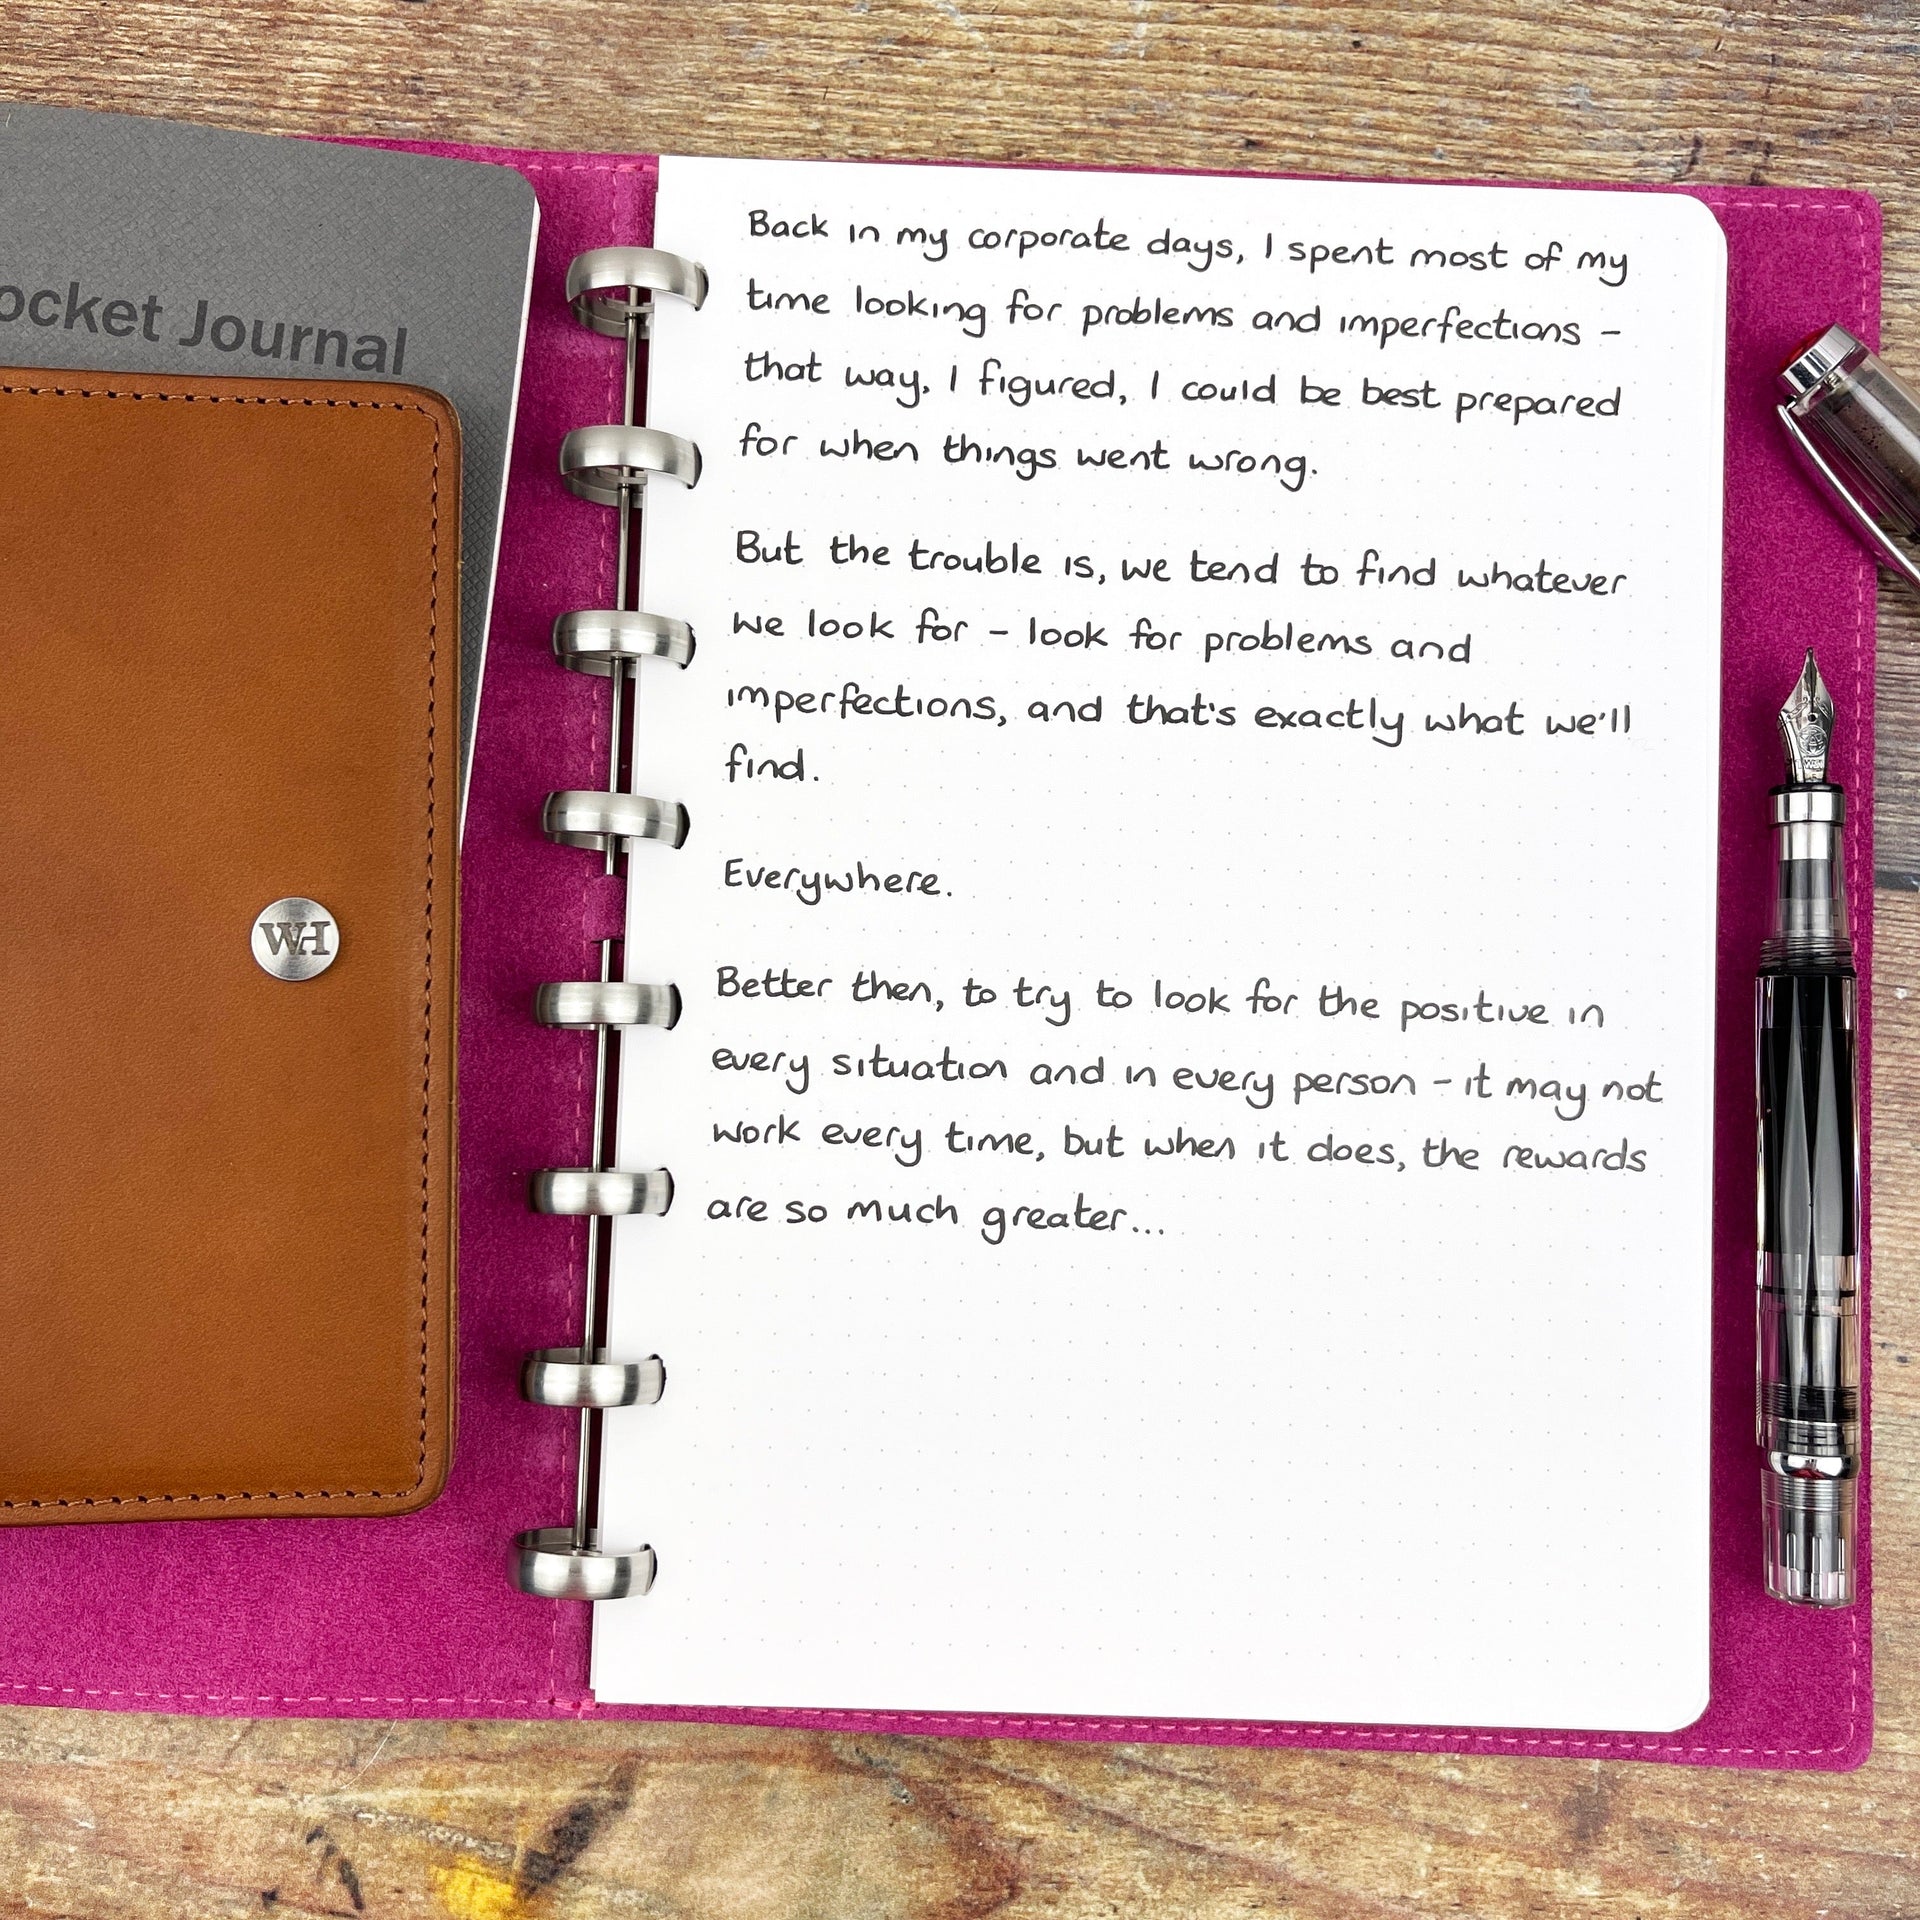 ocket Journal
WH
Back in my corporate days, I spent most of my
time looking for problems and imperfections –
that way, I figured, I could be best prepared
for when things went wrong.
But the trouble is, we tend to find whatever
we look for – look for problems and
imperfections, and that's exactly what we'll
find.
Everywhere.
Better then, to try to look for the positive in
every situation and in every person – it may not
work every time, but when it does, the rewards
are so much greater...